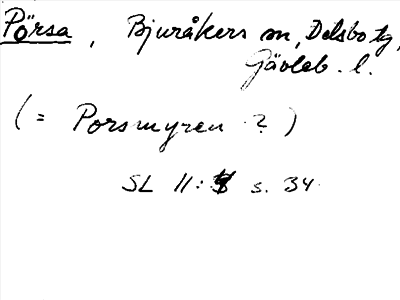 Pörsa, Bjuråkers sn, Delsbo tg,
Gävleb. l.
(= Porsmyren ? )
SL 11: s. 34